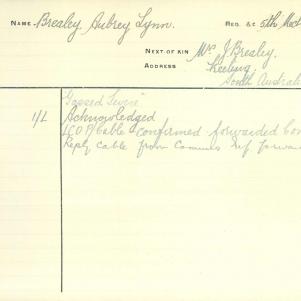 NAME Brealey, Aubrey Lynn. REG. &C 5th
NEXT OF KIN Mrs J Brealey,
ADDRESS Keeling,
South Australi
Gassed Severe
1/L Acknowledged
Cable confirmed forwarded
Reply Cable from ref